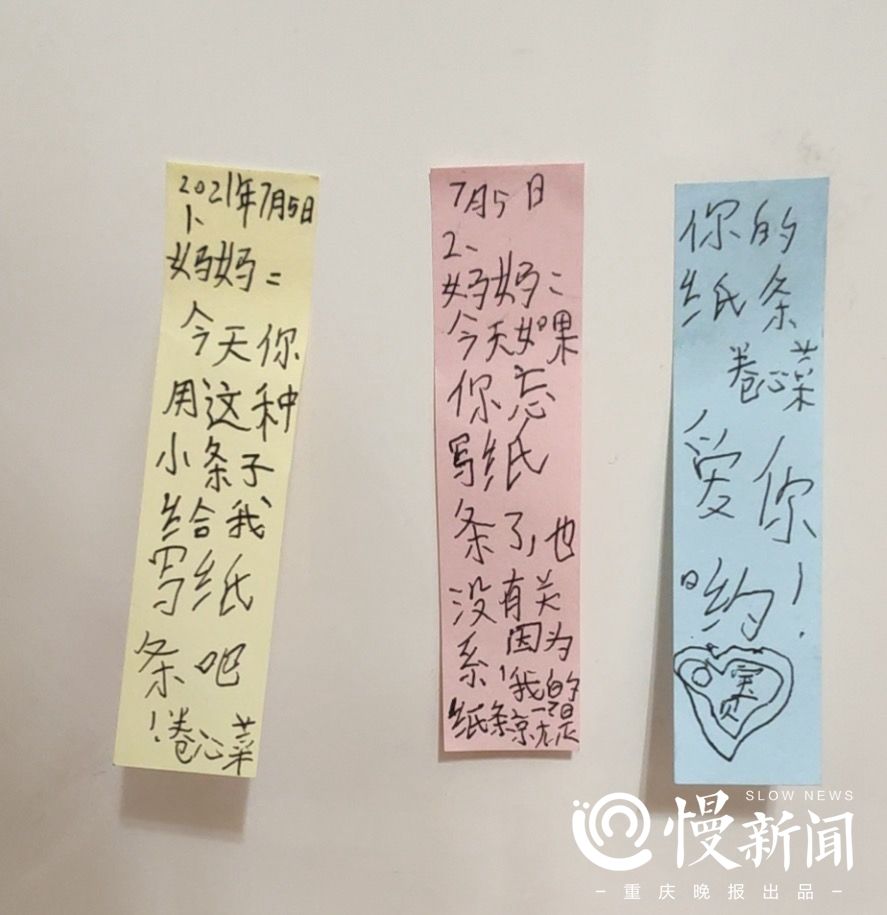 2021年7月5日
1、
妈妈：
今天你
用这种
小条子
给我
写纸
条吧
！卷心菜
7月5日
2、
妈妈：
今天如果
你忘
写纸
条了，也
没有关
系，因为
我的
纸条就是
你的
纸条
卷心菜
爱你
哟！
宝贝
SLOW NEWS
慢新闻
-重庆晚报出品-